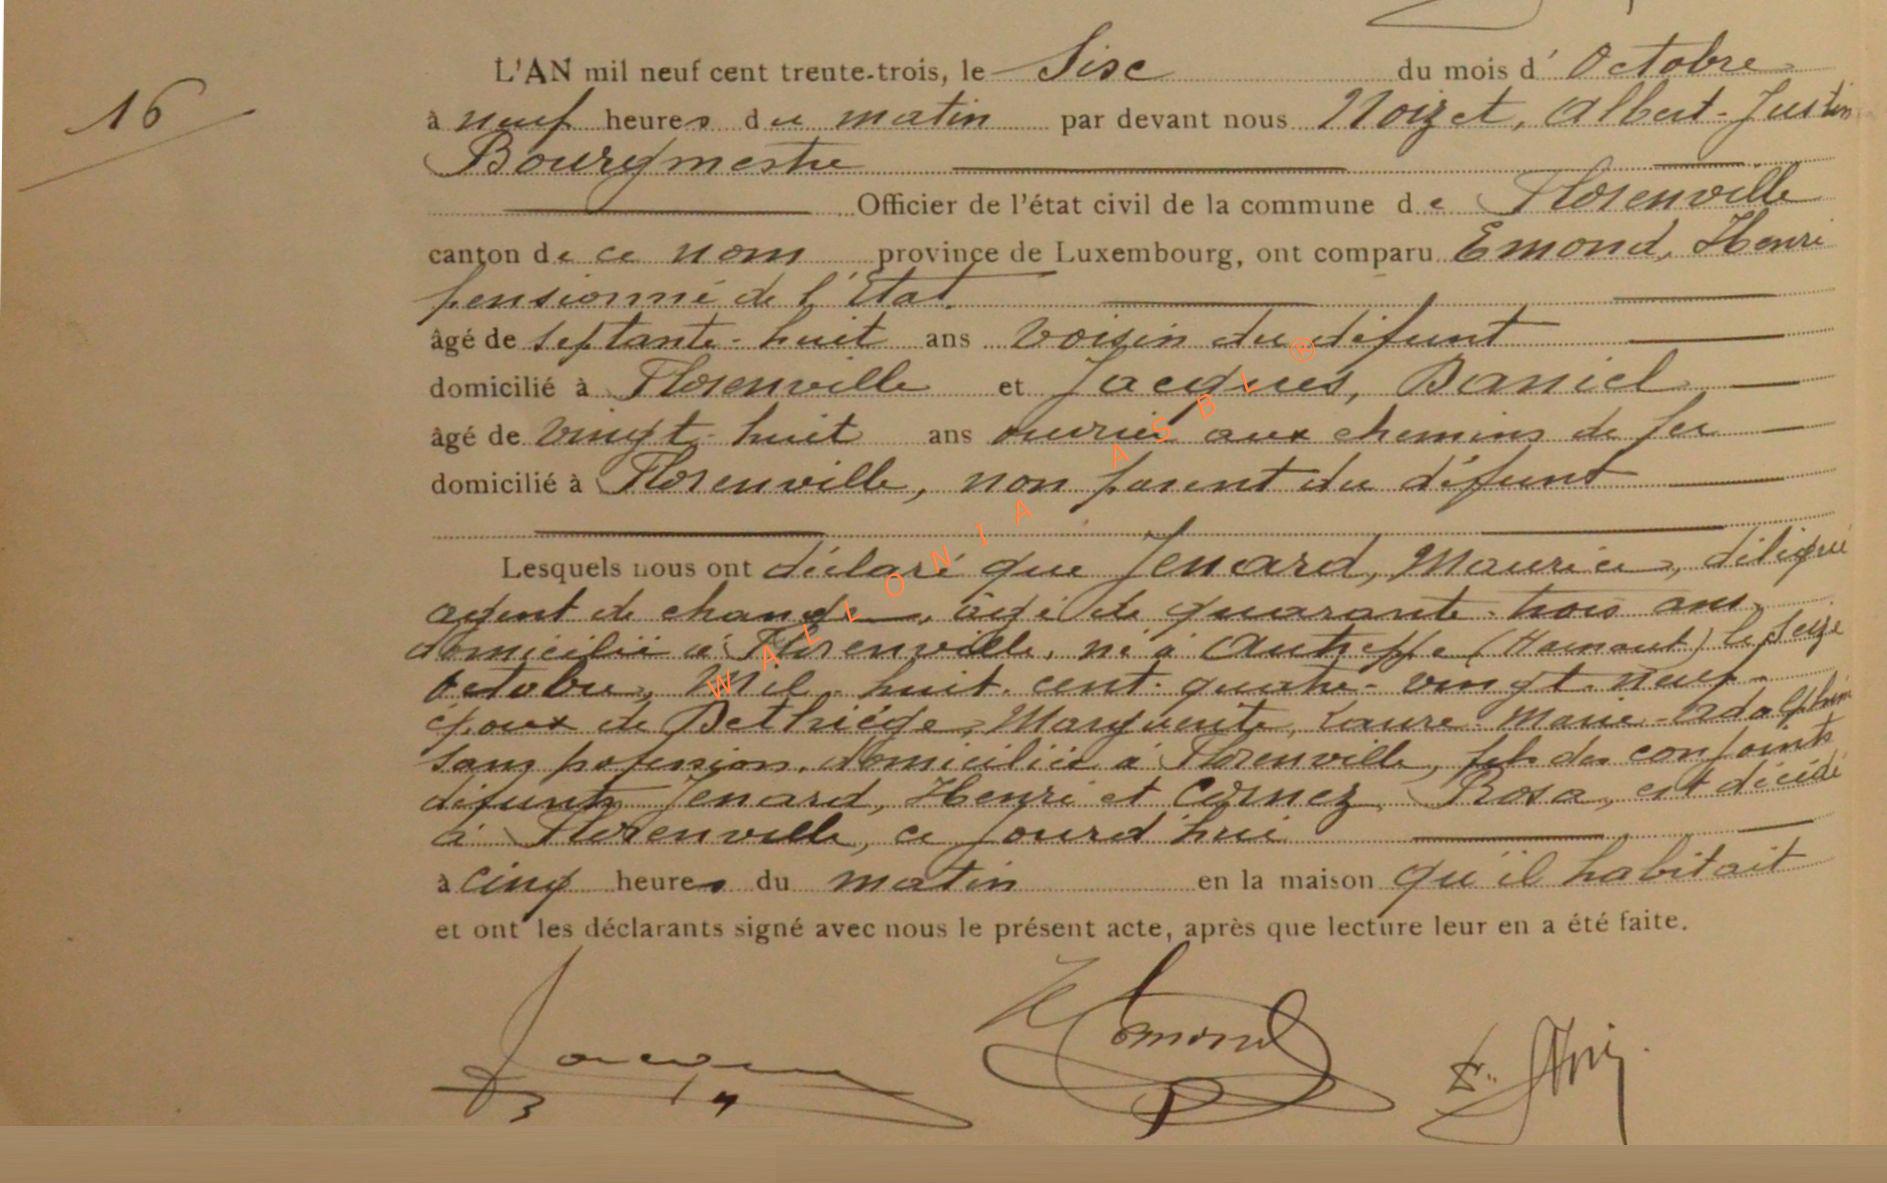 16
L'AN mil neuf cent trente-trois, le Sixe du mois d' Octobre
à neuf heures du matin par devant nous Noizet, Albert-Justin
Bourgmestre
Officier de l'état civil de la commune de Florenville
canton de ce nom province de Luxembourg, ont comparu Emond, Henri
pensionné de l'Etat.
âgé de septante-huit ans voisin du défunt
domicilié à Florenville et Jacques, Daniel
âgé de vingt-huit ans ouvrier aux chemins de fer
domicilié à Florenville, non parent du défunt
Lesquels nous ont déclaré que Jenard, Maurice, délégué
agent de change, âgé de quarante-trois ans
domicilié à Florenville, né à Autreppe (Hainaut) le seize
octobre, Mil-huit-cent-quatre-vingt-neuf
époux de Marguerite, Laure-Marie-
sans profession, domiciliée à Florenville, fils des conjoints
défunts Jenard, Henri et Cornez Rosa, est décédé
à Florenville, ce jourd'hui
à cinq heures du matin en la maison qu'il habitait
et ont les déclarants signé avec nous le présent acte, après que lecture leur en a été faite.
Emond
WALLONIA ASBL ®